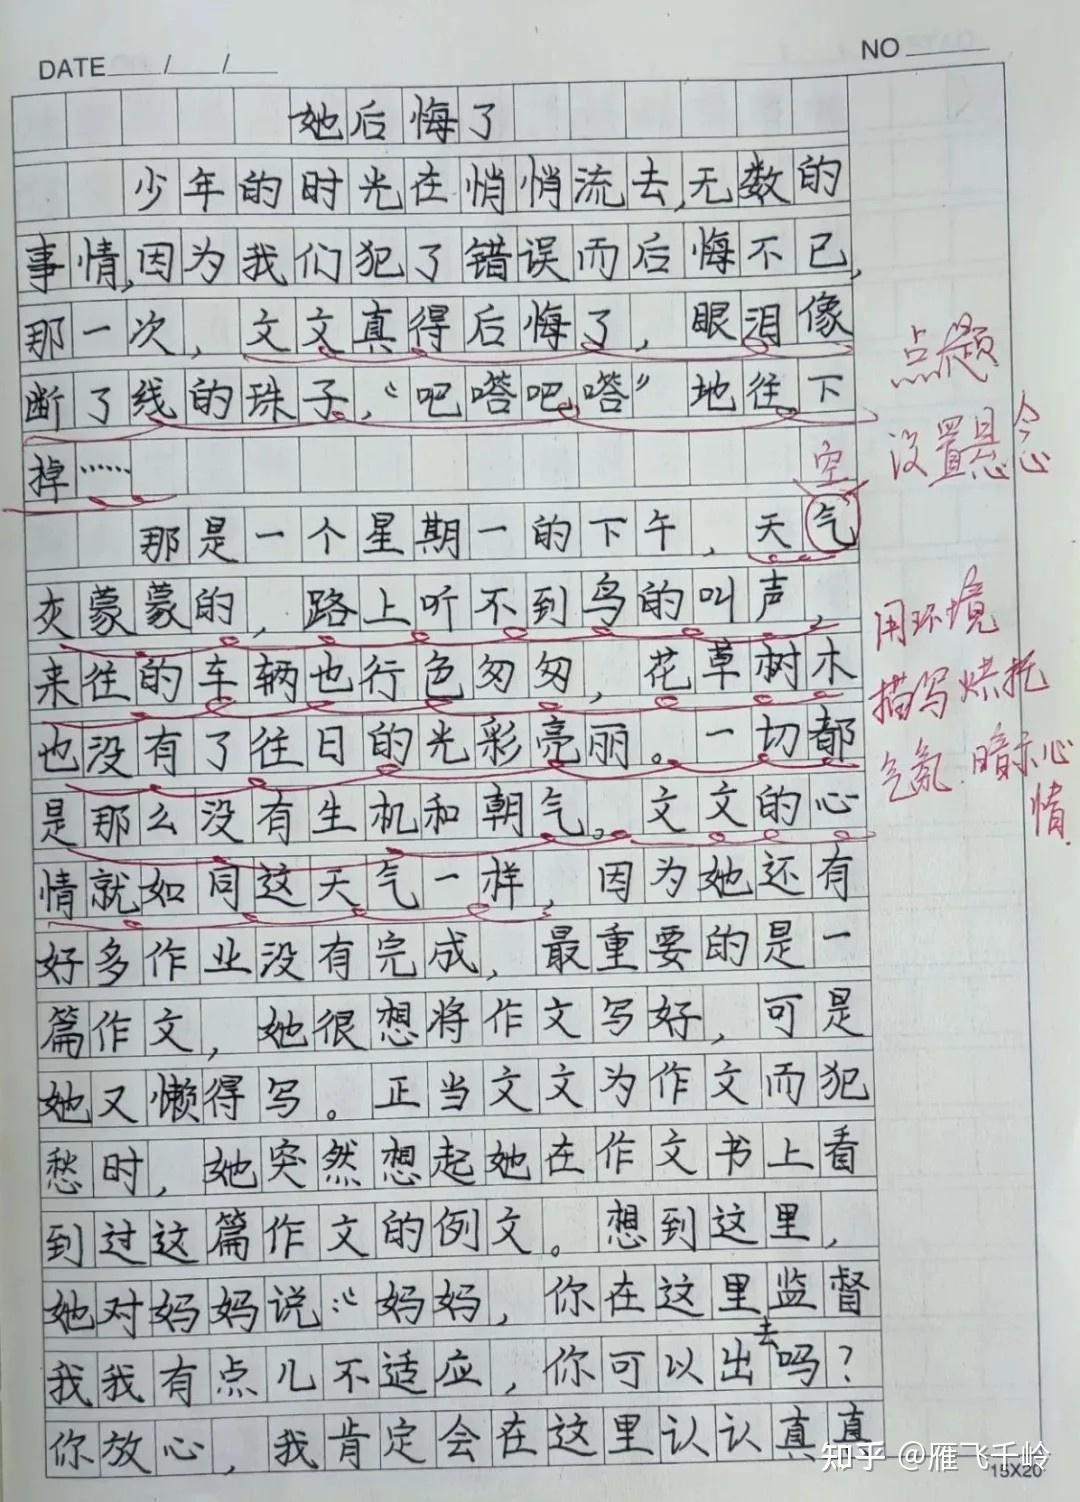 DATE___/___/___
NO______
她后悔了
少年的时光在悄悄流去,无数的
事情,因为我们犯了错误而后悔不已,
那一次,文文真得后悔了,眼泪像
断了线的珠子,“吧嗒吧嗒”地往下
掉……
点题
设置悬念
空
那是一个星期一的下午,天气
灰蒙蒙的,路上听不到鸟的叫声,
来往的车辆也行色匆匆,花草树木
也没有了往日的光彩亮丽。一切都
是那么没有生机和朝气。文文的心
情就如同这天气一样,因为她还有
用环境
描写烘托
气氛.暗示心
情.
好多作业没有完成,最重要的是一
篇作文,她很想将作文写好,可是
她又懒得写。正当文文为作文而犯
愁时,她突然想起她在作文书上看
到过这篇作文的例文。想到这里,
她对妈妈说:“妈妈,你在这里监督
我我有点儿不适应,你可以出去吗?
你放心,我肯定会在这里认认真真
知乎 @雁飞千岭
15X20